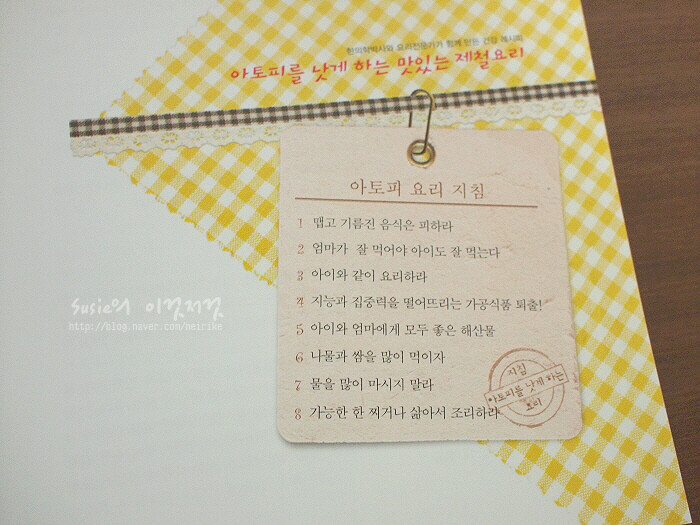 한의학박사와 요리전문가가 함께 만든 건강 레시피
아토피를 낫게 하는 맛있는 제철요리
아토피 요리 지침
1 맵고 기름진 음식은 피하라
2 엄마가 잘 먹어야 아이도 잘 먹는다
3 아이와 같이 요리하라
4 지능과 집중력을 떨어뜨리는 가공식품 퇴출!
5 아이와 엄마에게 모두 좋은 해산물
6 나물과 쌈을 많이 먹이자
7 물을 많이 마시지 말라
8 가능한 한 찌거나 삶아서 조리하라
지침
아토피를 낫게 하는
요리
Susie의 이것저것
http://blog.naver.com/neirike